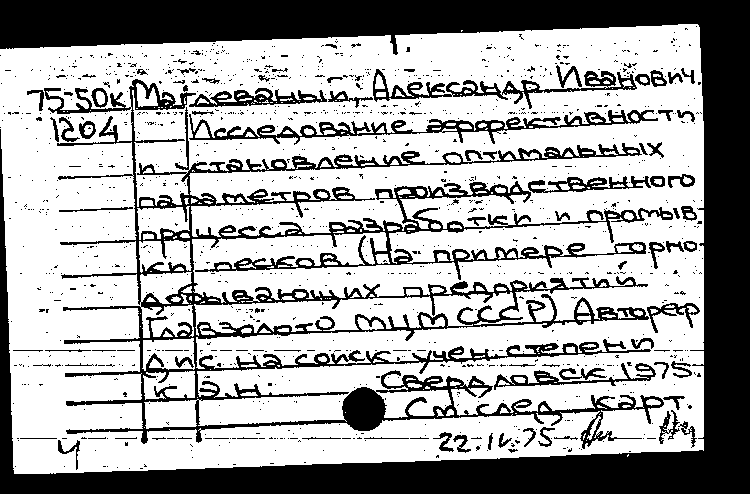 1.
75-50к Маглеваный, Александр Иванович.
1204 Исследование эффективности
и установление оптимальных
параметров производственного
процесса разработки и промыв-
ки песков. (На примере горно-
добывающих предприятий
Главзолото МЦМ СССР) Автореф
дис. на соиск. учен. степени
к. э. н. Свердловск, 1975.
См. след карт.
Ч 22.IV.75